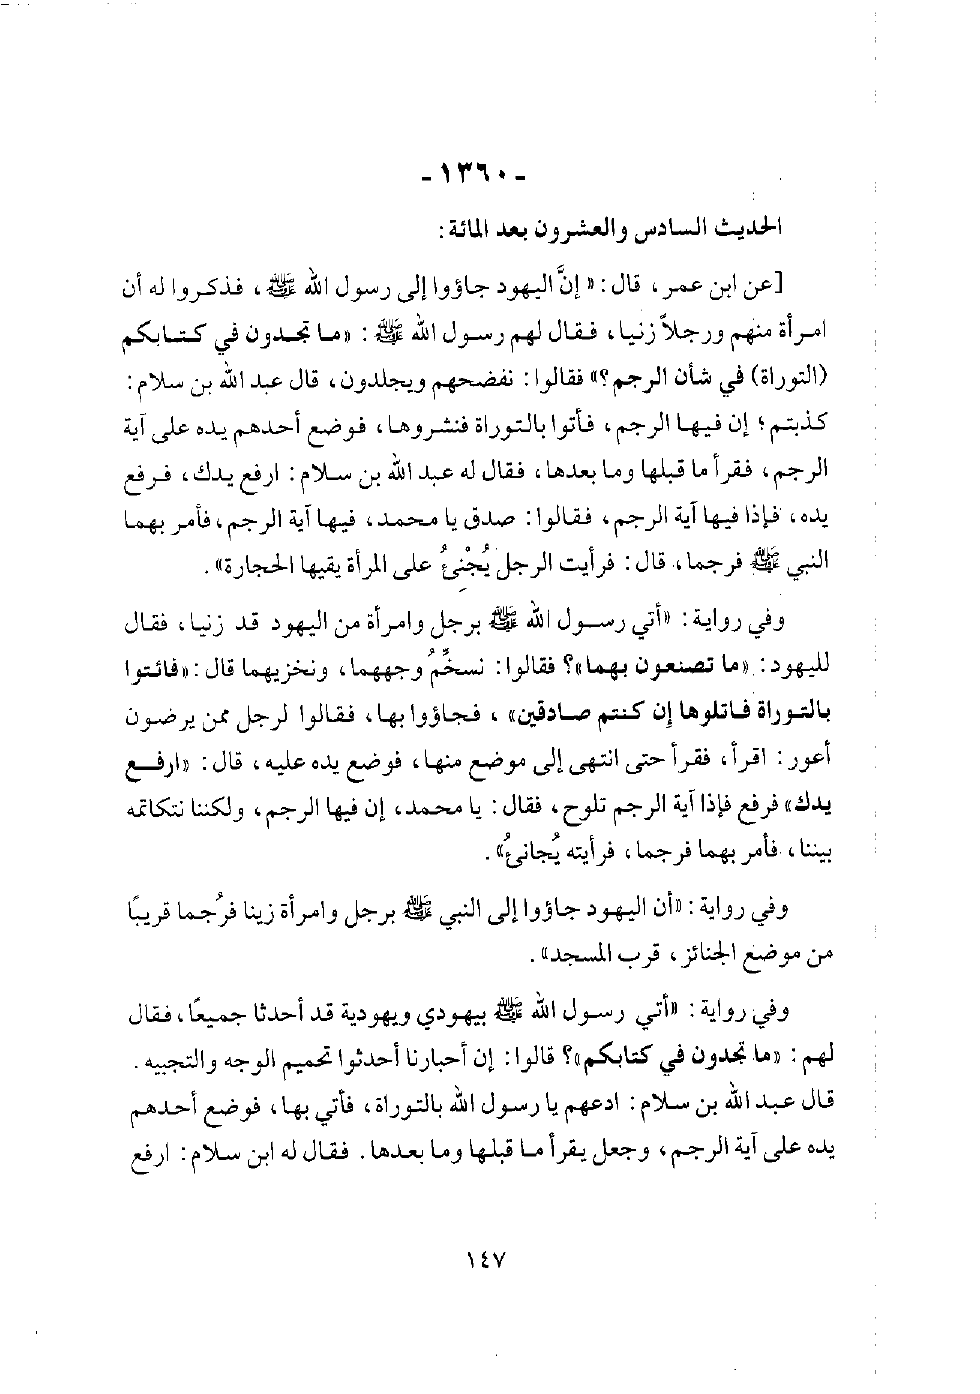 - ١٣٦٠ -
الحديث السادس والعشرون بعد المائة:
[عن ابن عمر، قال: «إنَّ اليهود جاؤوا إلى رسول الله ﷺ، فذكروا له أن
امرأة منهم ورجلاً زنيا، فقال لهم رسول الله ﷺ: «ما تجدون في كتابكم
(التوراة) في شأن الرجم؟» فقالوا: نفضحهم ويجلدون، قال عبد الله بن سلام:
كذبتم؛ إن فيها الرجم، فأتوا بالتوراة فنشروها، فوضع أحدهم يده على آية
الرجم، فقرأ ما قبلها وما بعدها، فقال له عبد الله بن سلام: ارفع يدك، فرفع
يده، فإذا فيها آية الرجم، فقالوا: صدق يا محمد، فيها آية الرجم، فأمر بهما
النبي ﷺ فرجما، قال: فرأيت الرجل يُجْنِئُ على المرأة يقيها الحجارة».
وفي رواية: «أتي رسول الله ﷺ برجل وامرأة من اليهود قد زنيا، فقال
لليهود: «ما تصنعون بهما»؟ فقالوا: نسخِّمُ وجههما، ونخزيهما قال: «فائتوا
بالتوراة فاتلوها إن كنتم صادقين»، فجاؤوا بها، فقالوا لرجل ممن يرضون
أعور: اقرأ، فقرأ حتى انتهى إلى موضع منها، فوضع يده عليه، قال: «ارفع
يدك» فرفع فإذا آية الرجم تلوح، فقال: يا محمد، إن فيها الرجم، ولكننا نتكاتمه
بيننا، فأمر بهما فرجما، فرأيته يُجانئُ».
وفي رواية: «أن اليهود جاؤوا إلى النبي ﷺ برجل وامرأة زينا فرُجما قريبًا
من موضع الجنائز، قرب المسجد».
وفي رواية: «أتي رسول الله ﷺ بيهودي ويهودية قد أحدثا جميعًا، فقال
لهم: «ما تجدون في كتابكم»؟ قالوا: إن أحبارنا أحدثوا تحميم الوجه والتجبيه.
قال عبد الله بن سلام: ادعهم يا رسول الله بالتوراة، فأتي بها، فوضع أحدهم
يده على آية الرجم، وجعل يقرأ ما قبلها وما بعدها. فقال له ابن سلام: ارفع
١٤٧